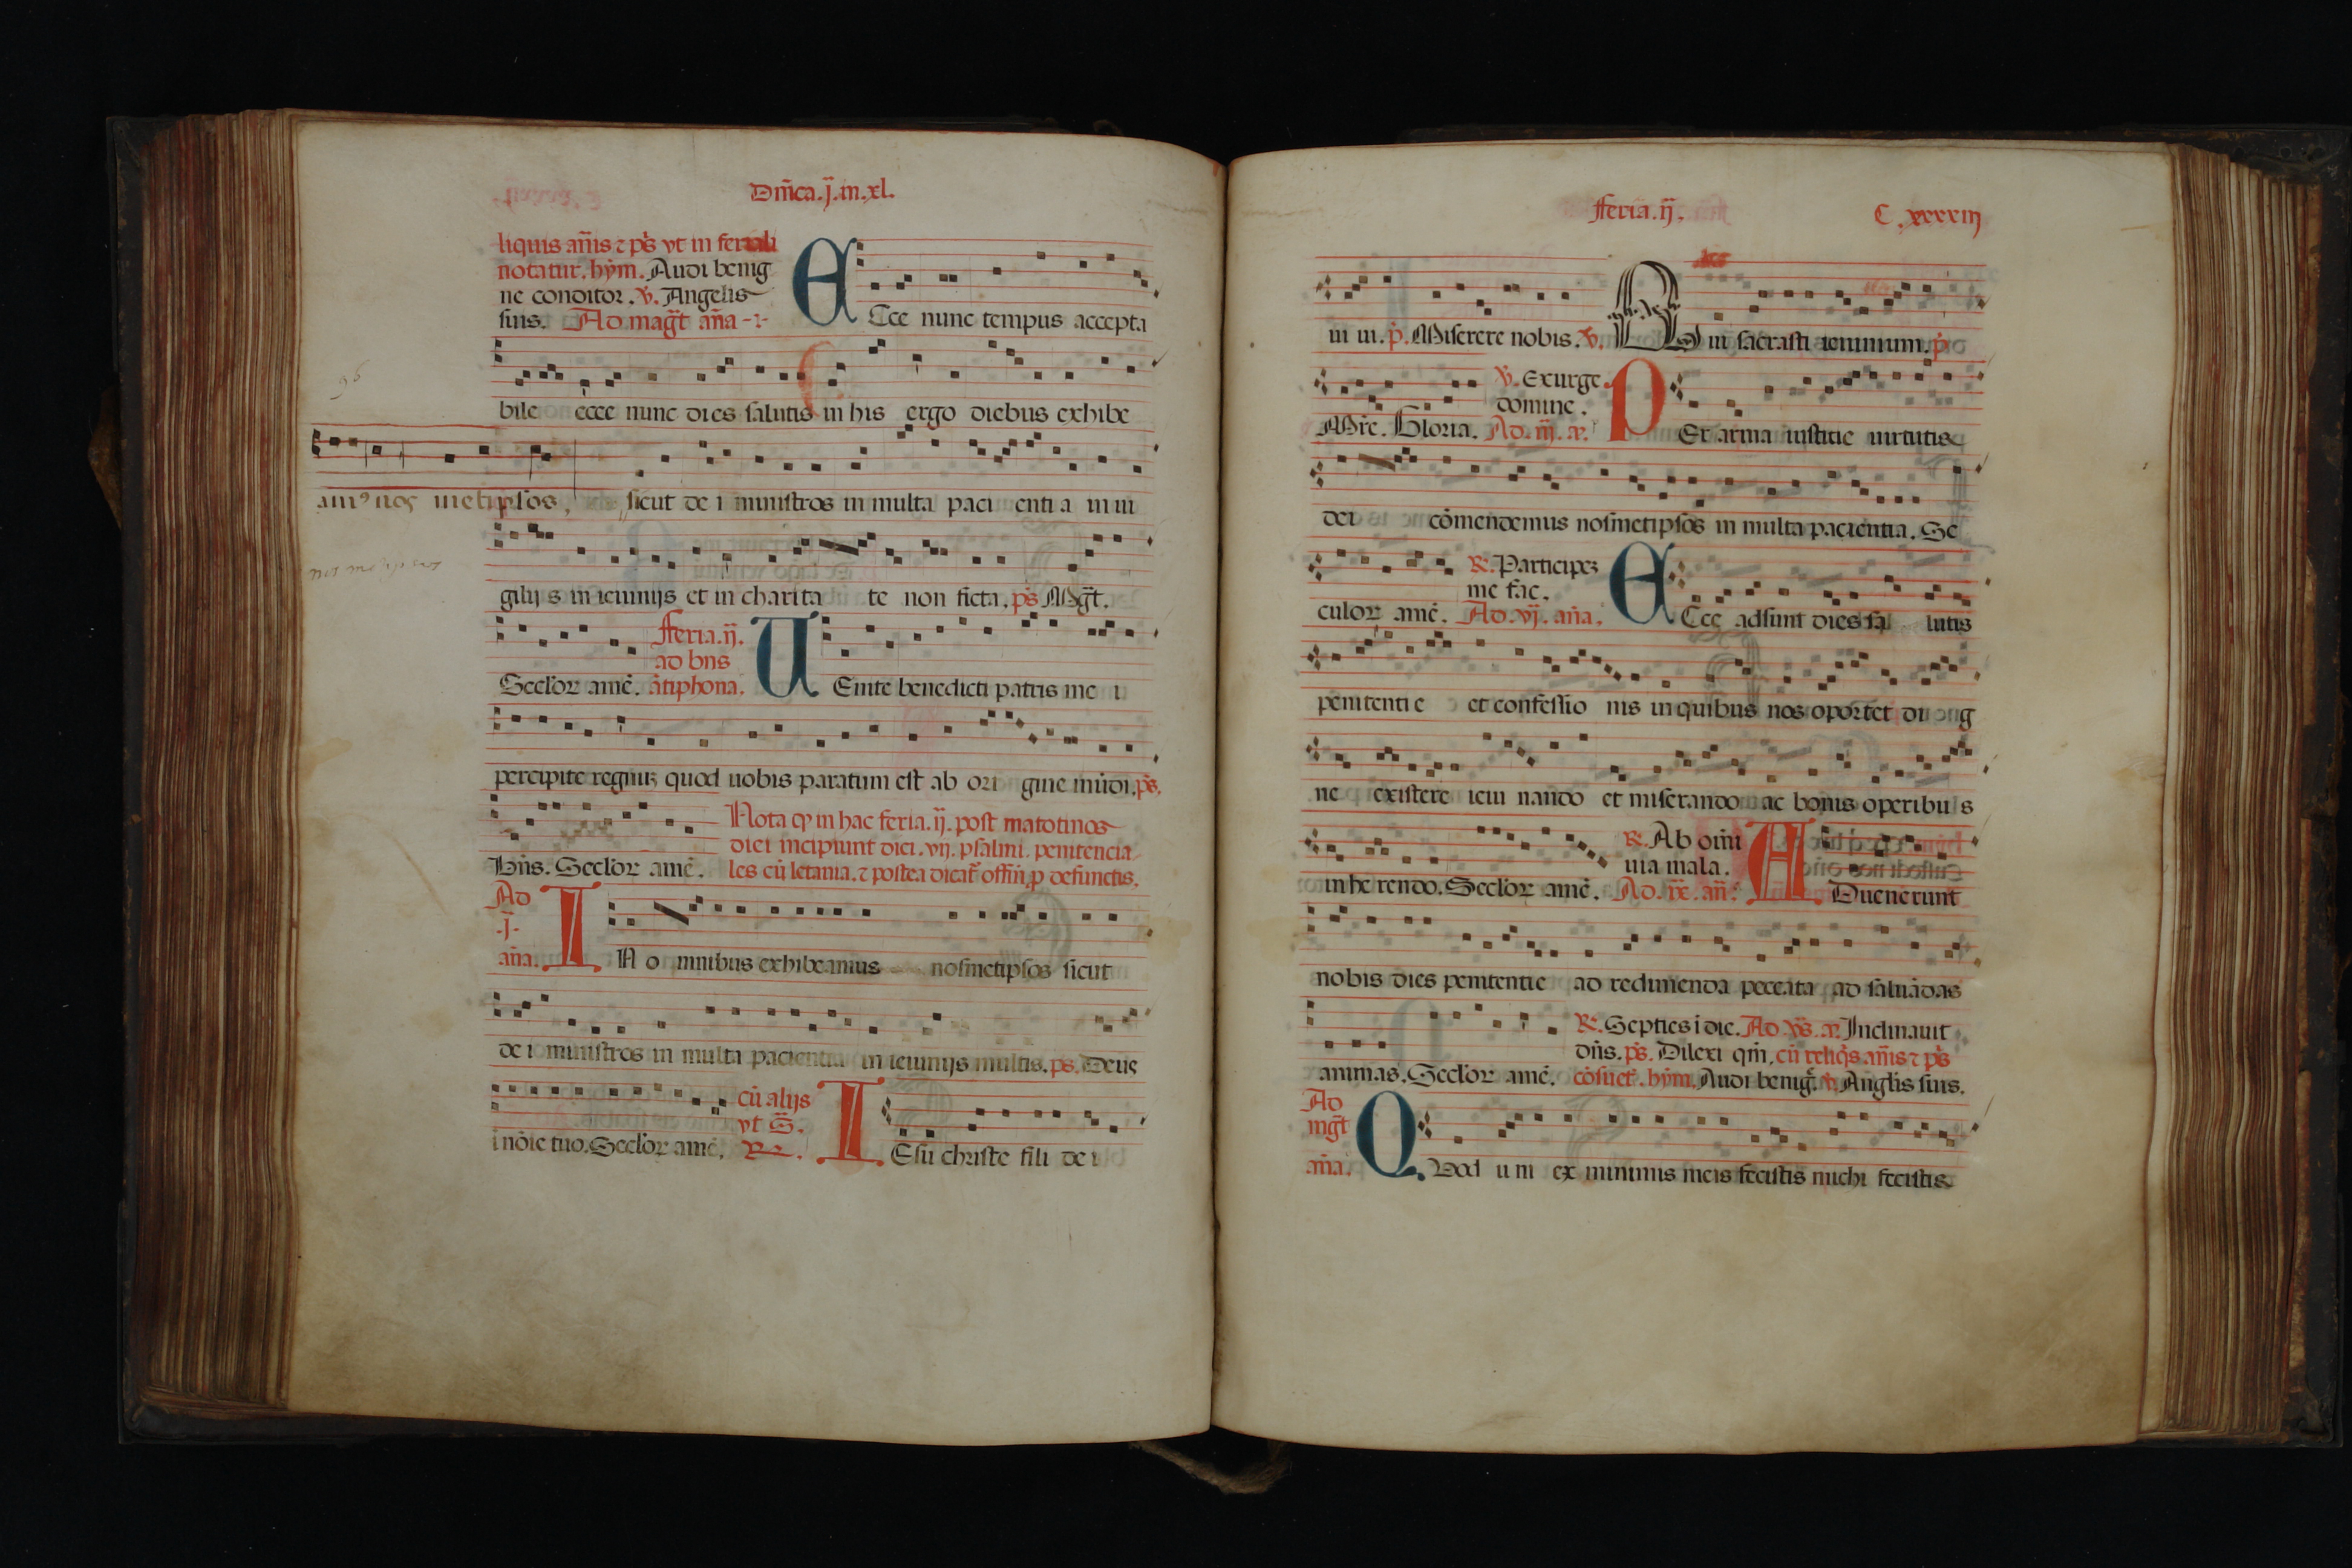 Dm̃ca.j̃.in.xl.
liquis añis ⁊ p̃s vt in feriali
notatur. hỹm. Audi benig
ne conditor. ℣. Angelis
suis. Ad mag̃t aña -i-
ECce nunc tempus accepta
bile ecce nunc dies salutis in his ergo diebus exhibe
amꝰ nos metipsos, sicut de i ministros in multa paci enti a in ui
nos metipsos
gilij s in ieiunijs et in charita te non ficta. p̃s Mg̃t.
Seclor̃ amē. fferia.ij̃.
ad bñs
ãtiphona.
UEnite benedicti patris me i
percipite regnuʒ quod uobis paratum est ab ori gine mũdi. p̃s.
Bñs. Seclor̃ amē. Nota ꝙ in hac feria.ij̃. post matotinos
diei incipiunt dici.vij. psalmi. penitencia
les cũ letania. ⁊ postea dicat̃ offm̃. ꝓ defunctis.
Ad
-j̃-
aña.
IN o mnibus exhibeamus nosmetipsos sicut
de i ministros in multa pacientia in ieiunijs multis. ps. Deus
i nõie tuo. Seclor̃ amē. cũ alijs
vt S̃.
℟.
IEsu christe fili de i
fferia.ij̃. C.xxxxiij
ui ui. p̃. Miserere nobis. ℣. Qui sacrasti ieiunium. p̃
Mr̃e. Gloria. ℣. Exurge
domine.
Ad.iij̃. a.
PEr arma iustitie uirtutis
dei cõmendemus nosmetipsos in multa pacientia. Se
culor̃ amē. ℟. Participeʒ
me fac.
Ad.vj̃. añ̃a.
ECce adsunt dies sal lutis
penitenti e et confessio nis in quibus nos oportet di ig
ne existere ieiu nando et miserando ac bonis operibu s
inhe rendo. Seclor̃ amē. ℟. Ab om̃i
uia mala.
Ad.ix̃. añ.
ADuenerunt
nobis dies penitentie ad redimenda peccata ad saluãdas
animas. Seclor̃ amē. ℟. Septies i die. Ad.vp̃s. a. Inclinauit
dñs. p̃s. Dilexi qm̃. cũ reliq̃s añis ⁊ p̃s
cõsuet̃. hỹm. Audi benig̃. ℣. Anglis suis.
Ad
mg̃t
añ̃a.
QUod u ni ex minimis meis fecistis michi fecistis